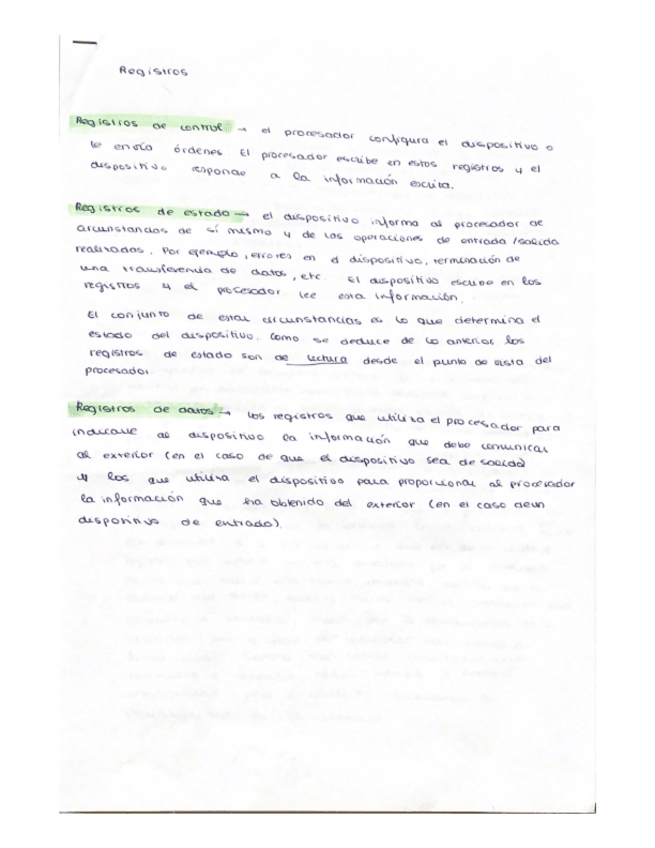 Registros
Registros de control → el procesador configura el dispositivo o
le envía órdenes. El procesador escribe en estos registros y el
dispositivo responde a la información escrita.
Registros de estado → el dispositivo informa al procesador de
circunstancias de sí mismo y de las operaciones de entrada/salida
realizadas. Por ejemplo, errores en el dispositivo, terminación de
una transferencia de datos, etc. El dispositivo escribe en los
registros y el procesador lee esta información.
El conjunto de estas circunstancias es lo que determina el
estado del dispositivo. Como se deduce de lo anterior los
registros de estado son de lectura desde el punto de vista del
procesador.
Registros de datos → los registros que utiliza el procesador para
indicarle al dispositivo la información que debe comunicar
al exterior (en el caso de que el dispositivo sea de salida)
y los que utiliza el dispositivo para proporcionar al procesador
la información que ha obtenido del exterior (en el caso de un
dispositivo de entrada).